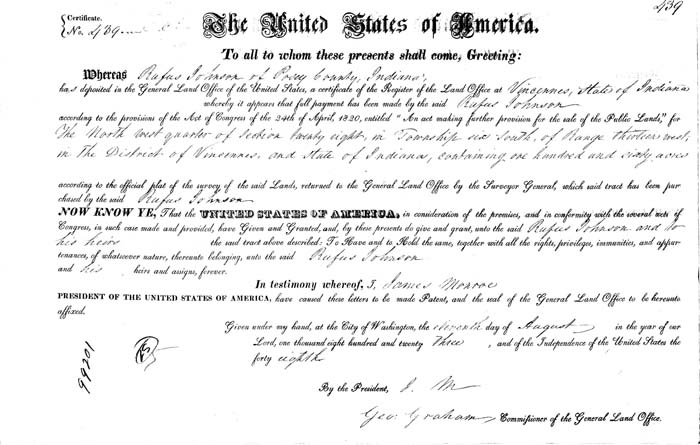 439
Certificate.
No. 439
The United States of America.
To all to whom these presents shall come, Greeting:
Whereas Rufus Johnson of Posey County, Indiana,
has deposited in the General Land Office of the United States, a certificate of the Register of the Land Office at Vincennes, State of Indiana
whereby it appears that full payment has been made by the said Rufus Johnson
according to the provisions of the Act of Congress of the 24th of April, 1820, entitled "An act making further provision for the sale of the Public Lands," for
The North West quarter of Section twenty eight, in Township six South, of Range thirteen west,
in the District of Vincennes, and State of Indiana, containing one hundred and sixty acres
according to the official plat of the survey of the said Lands, returned to the General Land Office by the Surveyor General, which said tract has been pur
chased by the said Rufus Johnson
NOW KNOW YE, That the UNITED STATES OF AMERICA, in consideration of the premises, and in conformity with the several acts of
Congress, in such case made and provided, have Given and Granted, and, by these presents do give and grant, unto the said Rufus Johnson and to
his heirs the said tract above described: To Have and to Hold the same, together with all the rights, privileges, immunities, and appur
tenances, of whatsoever nature, thereunto belonging, unto the said Rufus Johnson
and his heirs and assigns, forever.
In testimony whereof, I, James Monroe
PRESIDENT OF THE UNITED STATES OF AMERICA, have caused these letters to be made Patent, and the seal of the General Land Office to be hereunto
affixed.
Given under my hand, at the City of Washington, the eleventh day of August in the year of our
Lord, one thousand eight hundred and twenty three, and of the Independence of the United States the
forty eighth
99201
By the President, J. M
Geo. Graham, Commissioner of the General Land Office.